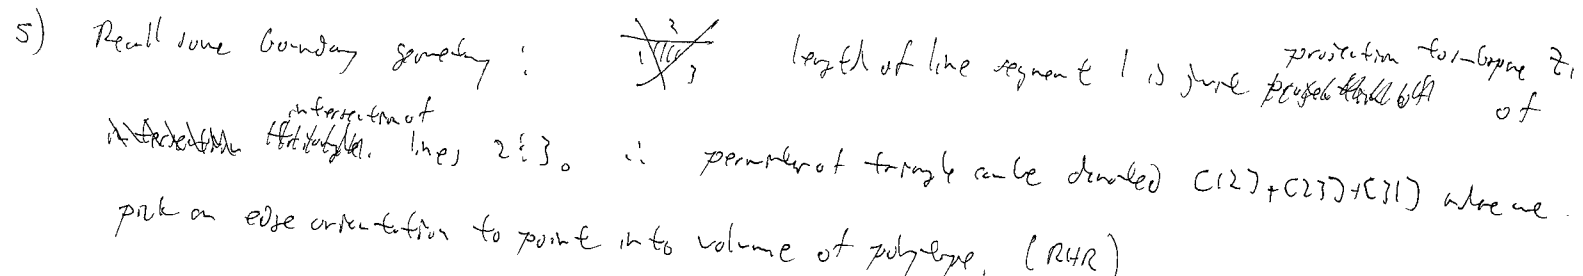 5) Recall some boundary geometry : 2 1 3 length of line segment 1 is just projection to subspace Z, of
intersection of lines 2 & 3. ∴ perimeter of triangle can be denoted [12]+[23]+[31] where we
pick an edge orientation to point into volume of polytope. (RHR)